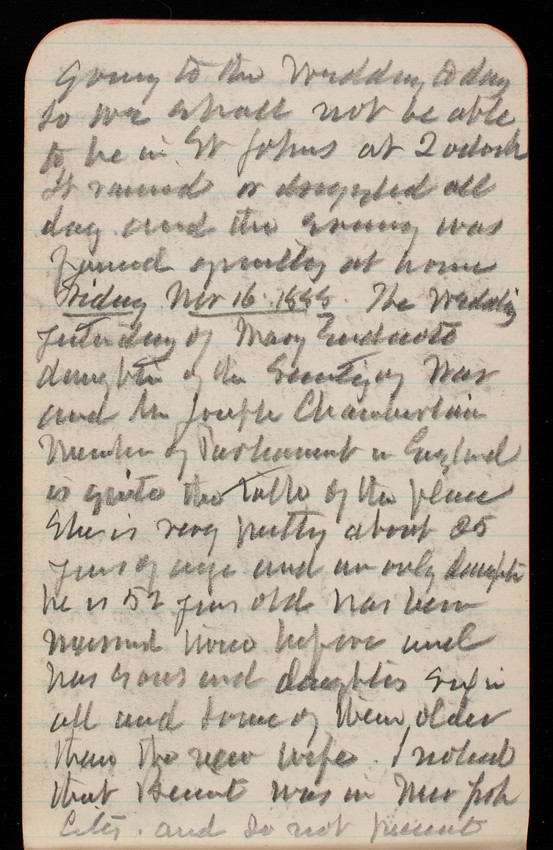 going to the Wedding today
so we shall not be able
to be in St Johns at 2 oclock
It rained or drizzled all
day and the evening was
passed quietly at home
Friday Nov 16. 1888. The Wedding
yesterday of Mary Endicott
daughter of the Secretary of War
and Mr Joseph Chamberlain
Member of Parliament in England
is quite the talk of the place
She is very pretty about 25
years of age and an only daughter
he is 52 years old has been
married twice before and
has sons and daughters six in
all and some of them older
than the new wife. I noticed
that was in New York
City. and so not present